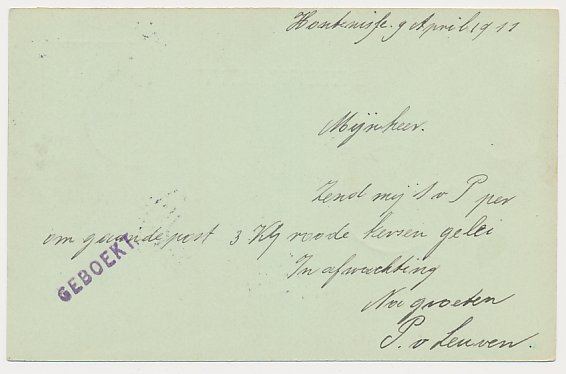 Hontenisse 9 April 1911
Mijnheer.
Zend mij s v P per
om gaande post 3 Kg roode kersen gelei
In afwachting
Na groeten
P. v Leuven.
GEBOEKT